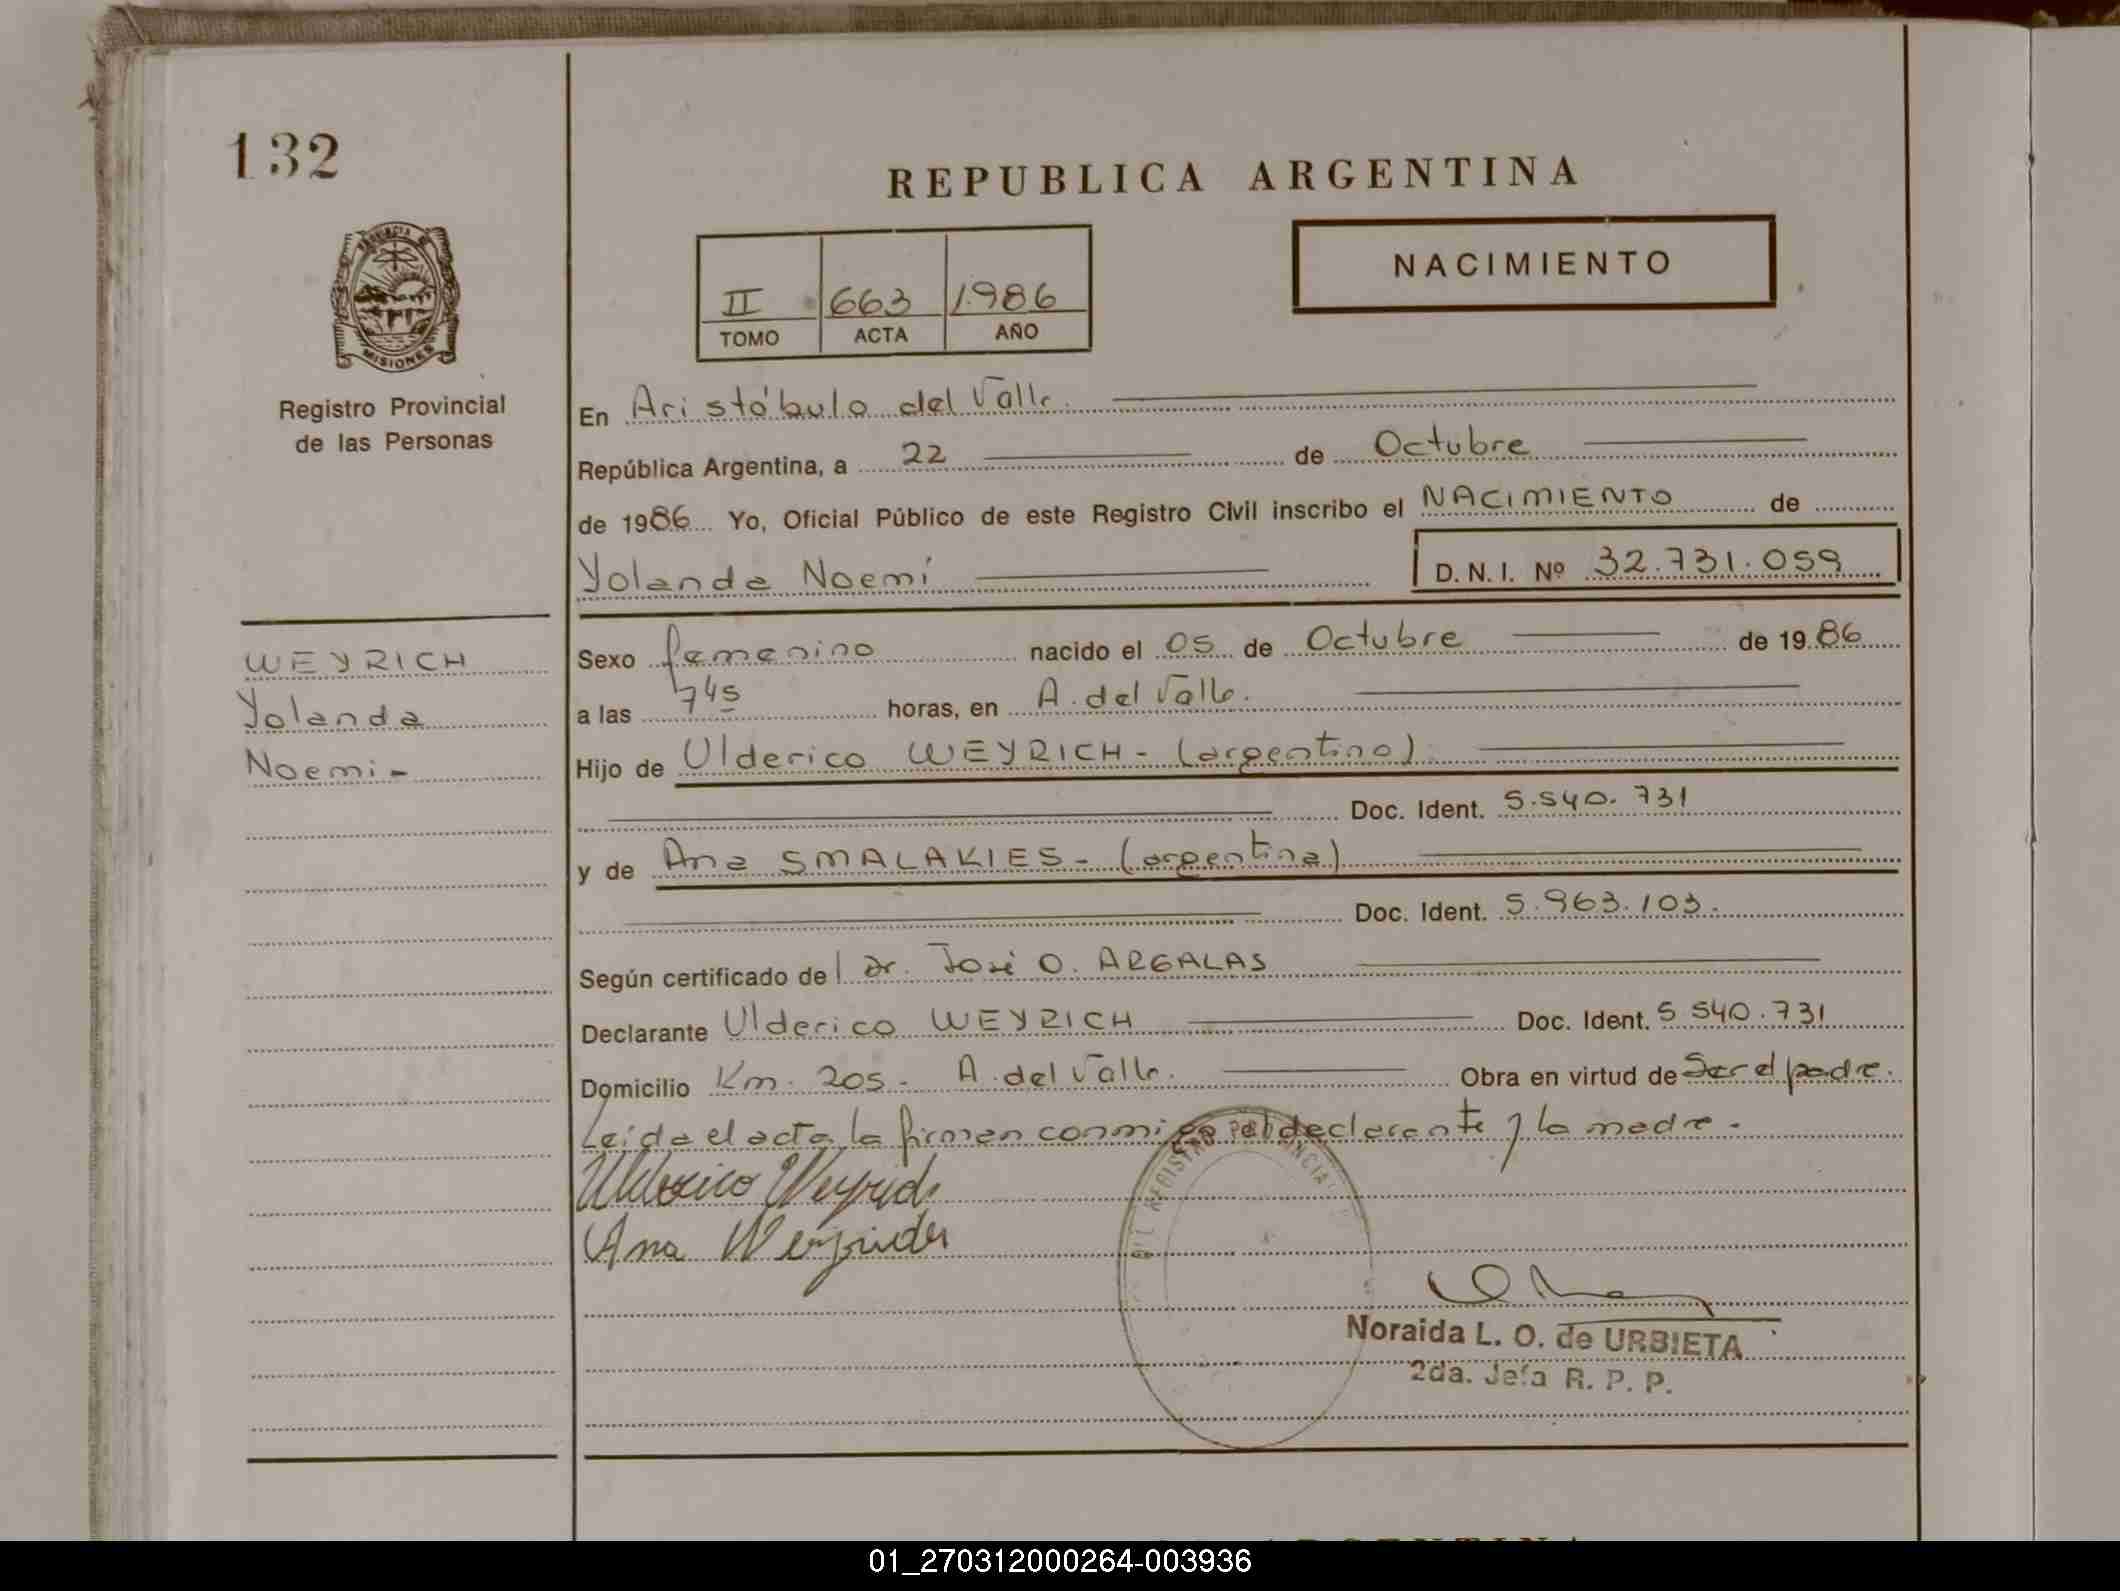 132
REPUBLICA ARGENTINA
NACIMIENTO
II 663 1.986
TOMO ACTA AÑO
PROVINCIA DE
MISIONES
Registro Provincial
de las Personas
En Aristóbulo del Valle.
República Argentina, a 22 de Octubre
de 1986 Yo, Oficial Público de este Registro Civil inscribo el NACIMIENTO de
Yolanda Noemí D. N. I. Nº 32.731.059
WEYRICH
Yolanda
Noemi-
Sexo femenino nacido el 05 de Octubre de 1986
a las 7 45 horas, en A. del Valle.
Hijo de Ulderico WEYRICH - (argentino)
Doc. Ident. 5.540.731
y de Ana SMALAKIES - (argentina)
Doc. Ident. 5.963.103.
Según certificado de l Dr. José O. ARGALAS
Declarante Ulderico WEYRICH Doc. Ident. 5 540.731
Domicilio Km. 205 - A. del Valle. Obra en virtud de Ser el padre.
Leída el acta la firman conmigo el declarante y la madre.
REGISTRO PROVINCIAL
Ulderico Weyrich
Ana
Noraida L. O. de URBIETA
2da. Jefa R. P. P.
01_270312000264-003936